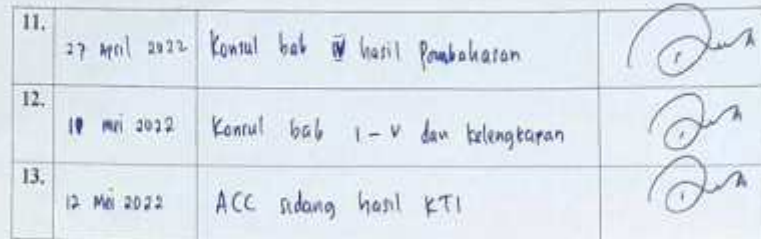 11. 27 April 2022 Konsul bab IV hasil Pembahasan
12. 10 Mei 2022 Konsul bab I - V dan kelengkapan
13. 12 Mei 2022 ACC sidang hasil KTI